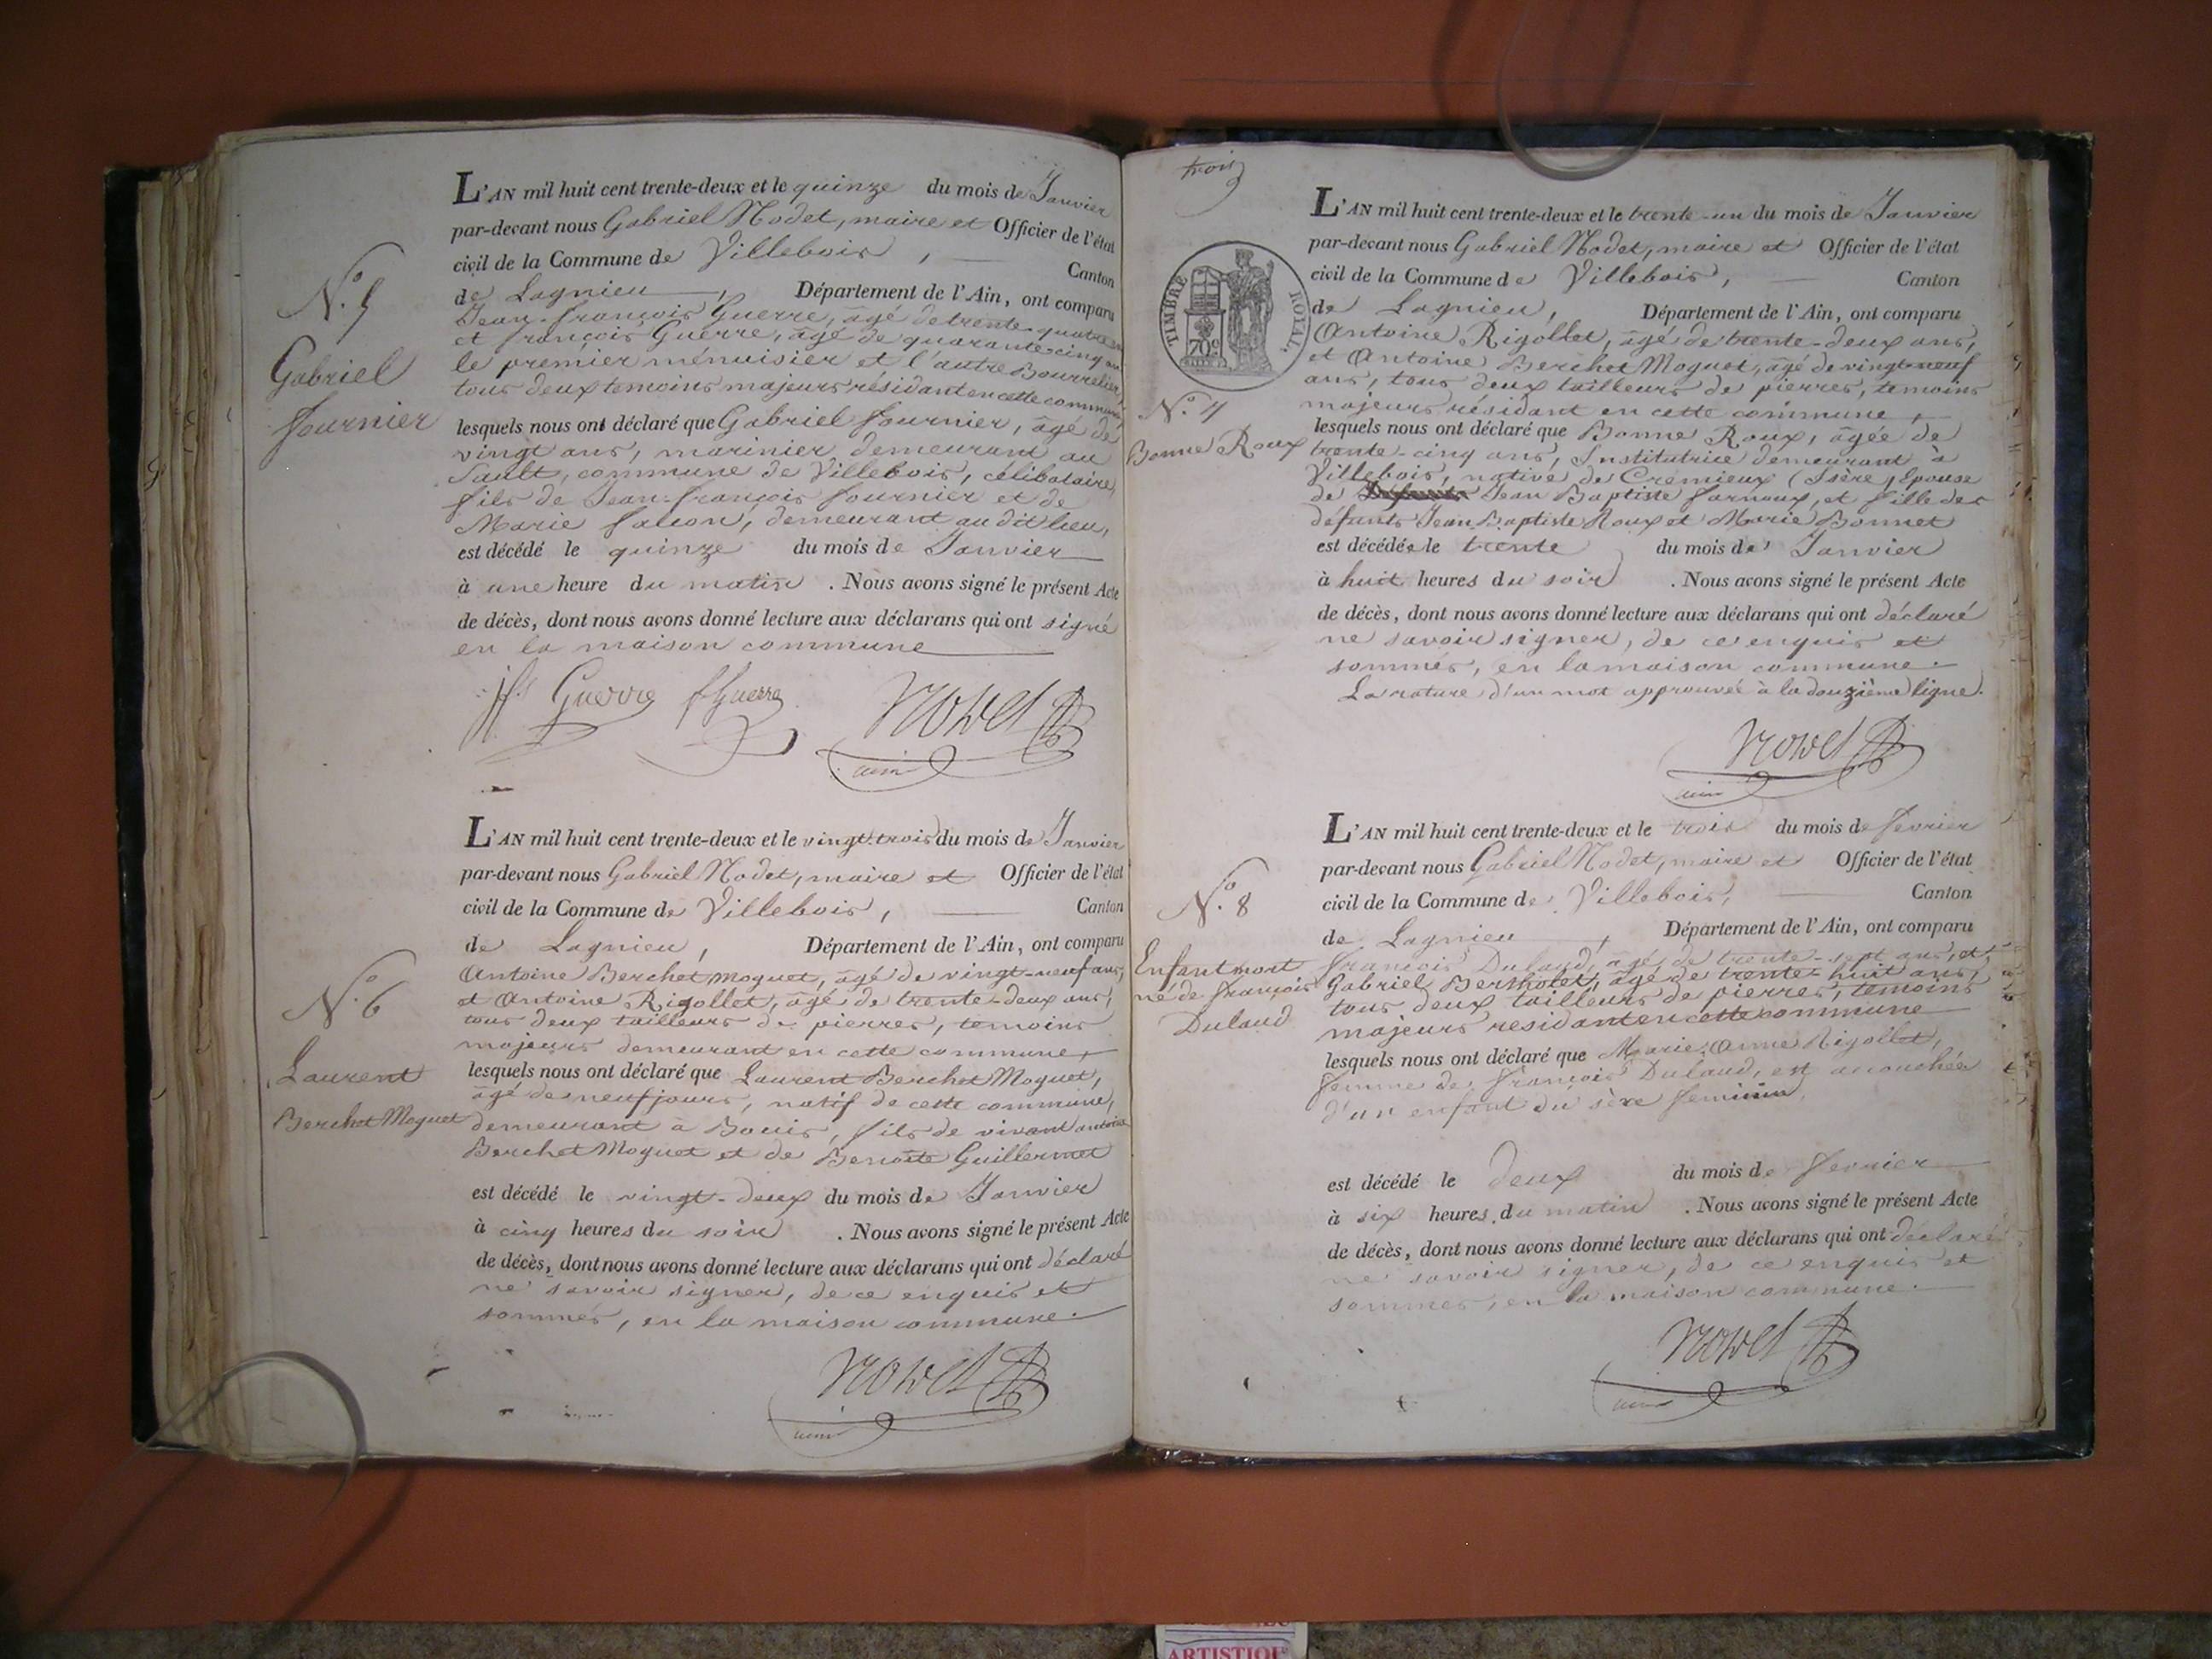 N.o 5
Gabriel
fournier
L'AN mil huit cent trente-deux et le quinze du mois de Janvier
par-devant nous Gabriel Nodet, maire et Officier de l'état
civil de la Commune de Villebois, Canton
de Lagnieu, Département de l'Ain, ont comparu
Jean-françois Guerre, âgé de trente-quatre
et françois Guerre, âgé de quarante-cinq ans
le premier ménuisier et l'autre Bourrelier,
tous deux temoins majeurs résidant en cette commune,
lesquels nous ont déclaré que Gabriel fournier, âgé de
vingt ans, marinier demeurant au
Sault, commune de Villebois, célibataire,
fils de Jean-françois fournier et de
Marie falcon, demeurant au dit lieu,
est décédé le quinze du mois de Janvier
à une heure du matin. Nous avons signé le présent Acte
de décès, dont nous avons donné lecture aux déclarans qui ont signé
en la maison commune
jfs Guerre f Guerre Nodet
N.o 6
Laurent
Berchet Moguet
L'AN mil huit cent trente-deux et le vingt-trois du mois de Janvier
par-devant nous Gabriel Nodet, maire et Officier de l'état
civil de la Commune de Villebois, Canton
de Lagnieu, Département de l'Ain, ont comparu
Antoine Berchet Moguet, âgé de vingt-neuf ans,
et Antoine Rigollet, âgé de trente-deux ans,
tous deux tailleurs de pierres, temoins
majeurs demeurant en cette commune,
lesquels nous ont déclaré que Laurent Berchet Moguet,
âgé de neuf jours, natif de cette commune,
demeurant à Bouis, fils de vivant antoine
Berchet Moguet et de Benoite Guillermet
est décédé le vingt-deux du mois de Janvier
à cinq heures du soir. Nous avons signé le présent Acte
de décès, dont nous avons donné lecture aux déclarans qui ont déclaré
ne savoir signer, de ce enquis et
sommés, en la maison commune.
Nodet
trois
TIMBRE ROYAL
70c
N.o 7
Bonne Roux
L'AN mil huit cent trente-deux et le trente-un du mois de Janvier
par-devant nous Gabriel Nodet, maire et Officier de l'état
civil de la Commune de Villebois, Canton
de Lagnieu, Département de l'Ain, ont comparu
Antoine Rigollet, âgé de trente-deux ans,
et Antoine Berchet Moguet, âgé de vingt-neuf
ans, tous deux tailleurs de pierres, temoins
majeurs résidant en cette commune,
lesquels nous ont déclaré que Bonne Roux, âgée de
trente-cinq ans, Institutrice demeurant à
Villebois, native de Crémieux (Isère, Epouse
de Jean Baptiste farnoux, et fille des
défunts Jean-Baptiste Roux et Marie Bonnet
est décédée le trente du mois de Janvier
à huit heures du soir. Nous avons signé le présent Acte
de décès, dont nous avons donné lecture aux déclarans qui ont déclaré
ne savoir signer, de ce enquis et
sommés, en la maison commune.
La rature d'un mot approuvée à la douzième ligne.
Nodet
N.o 8
Enfant mort
né de françois
Dulaud
L'AN mil huit cent trente-deux et le trois du mois de fevrier
par-devant nous Gabriel Nodet, maire et Officier de l'état
civil de la Commune de Villebois, Canton
de Lagnieu, Département de l'Ain, ont comparu
françois Dulaud, âgé de trente-sept ans, et
Gabriel Bertholet, âgé de trente-huit ans,
tous deux tailleurs de pierres, temoins
majeurs résidant en cette commune
lesquels nous ont déclaré que Marie Anne Rigollet,
femme de françois Dulaud, est accouchée
d'un enfant du sexe feminin,
est décédé le deux du mois de fevrier
à six heures du matin. Nous avons signé le présent Acte
de décès, dont nous avons donné lecture aux déclarans qui ont déclaré
ne savoir signer, de ce enquis et
sommés, en la maison commune.
Nodet
ARTISTIQ